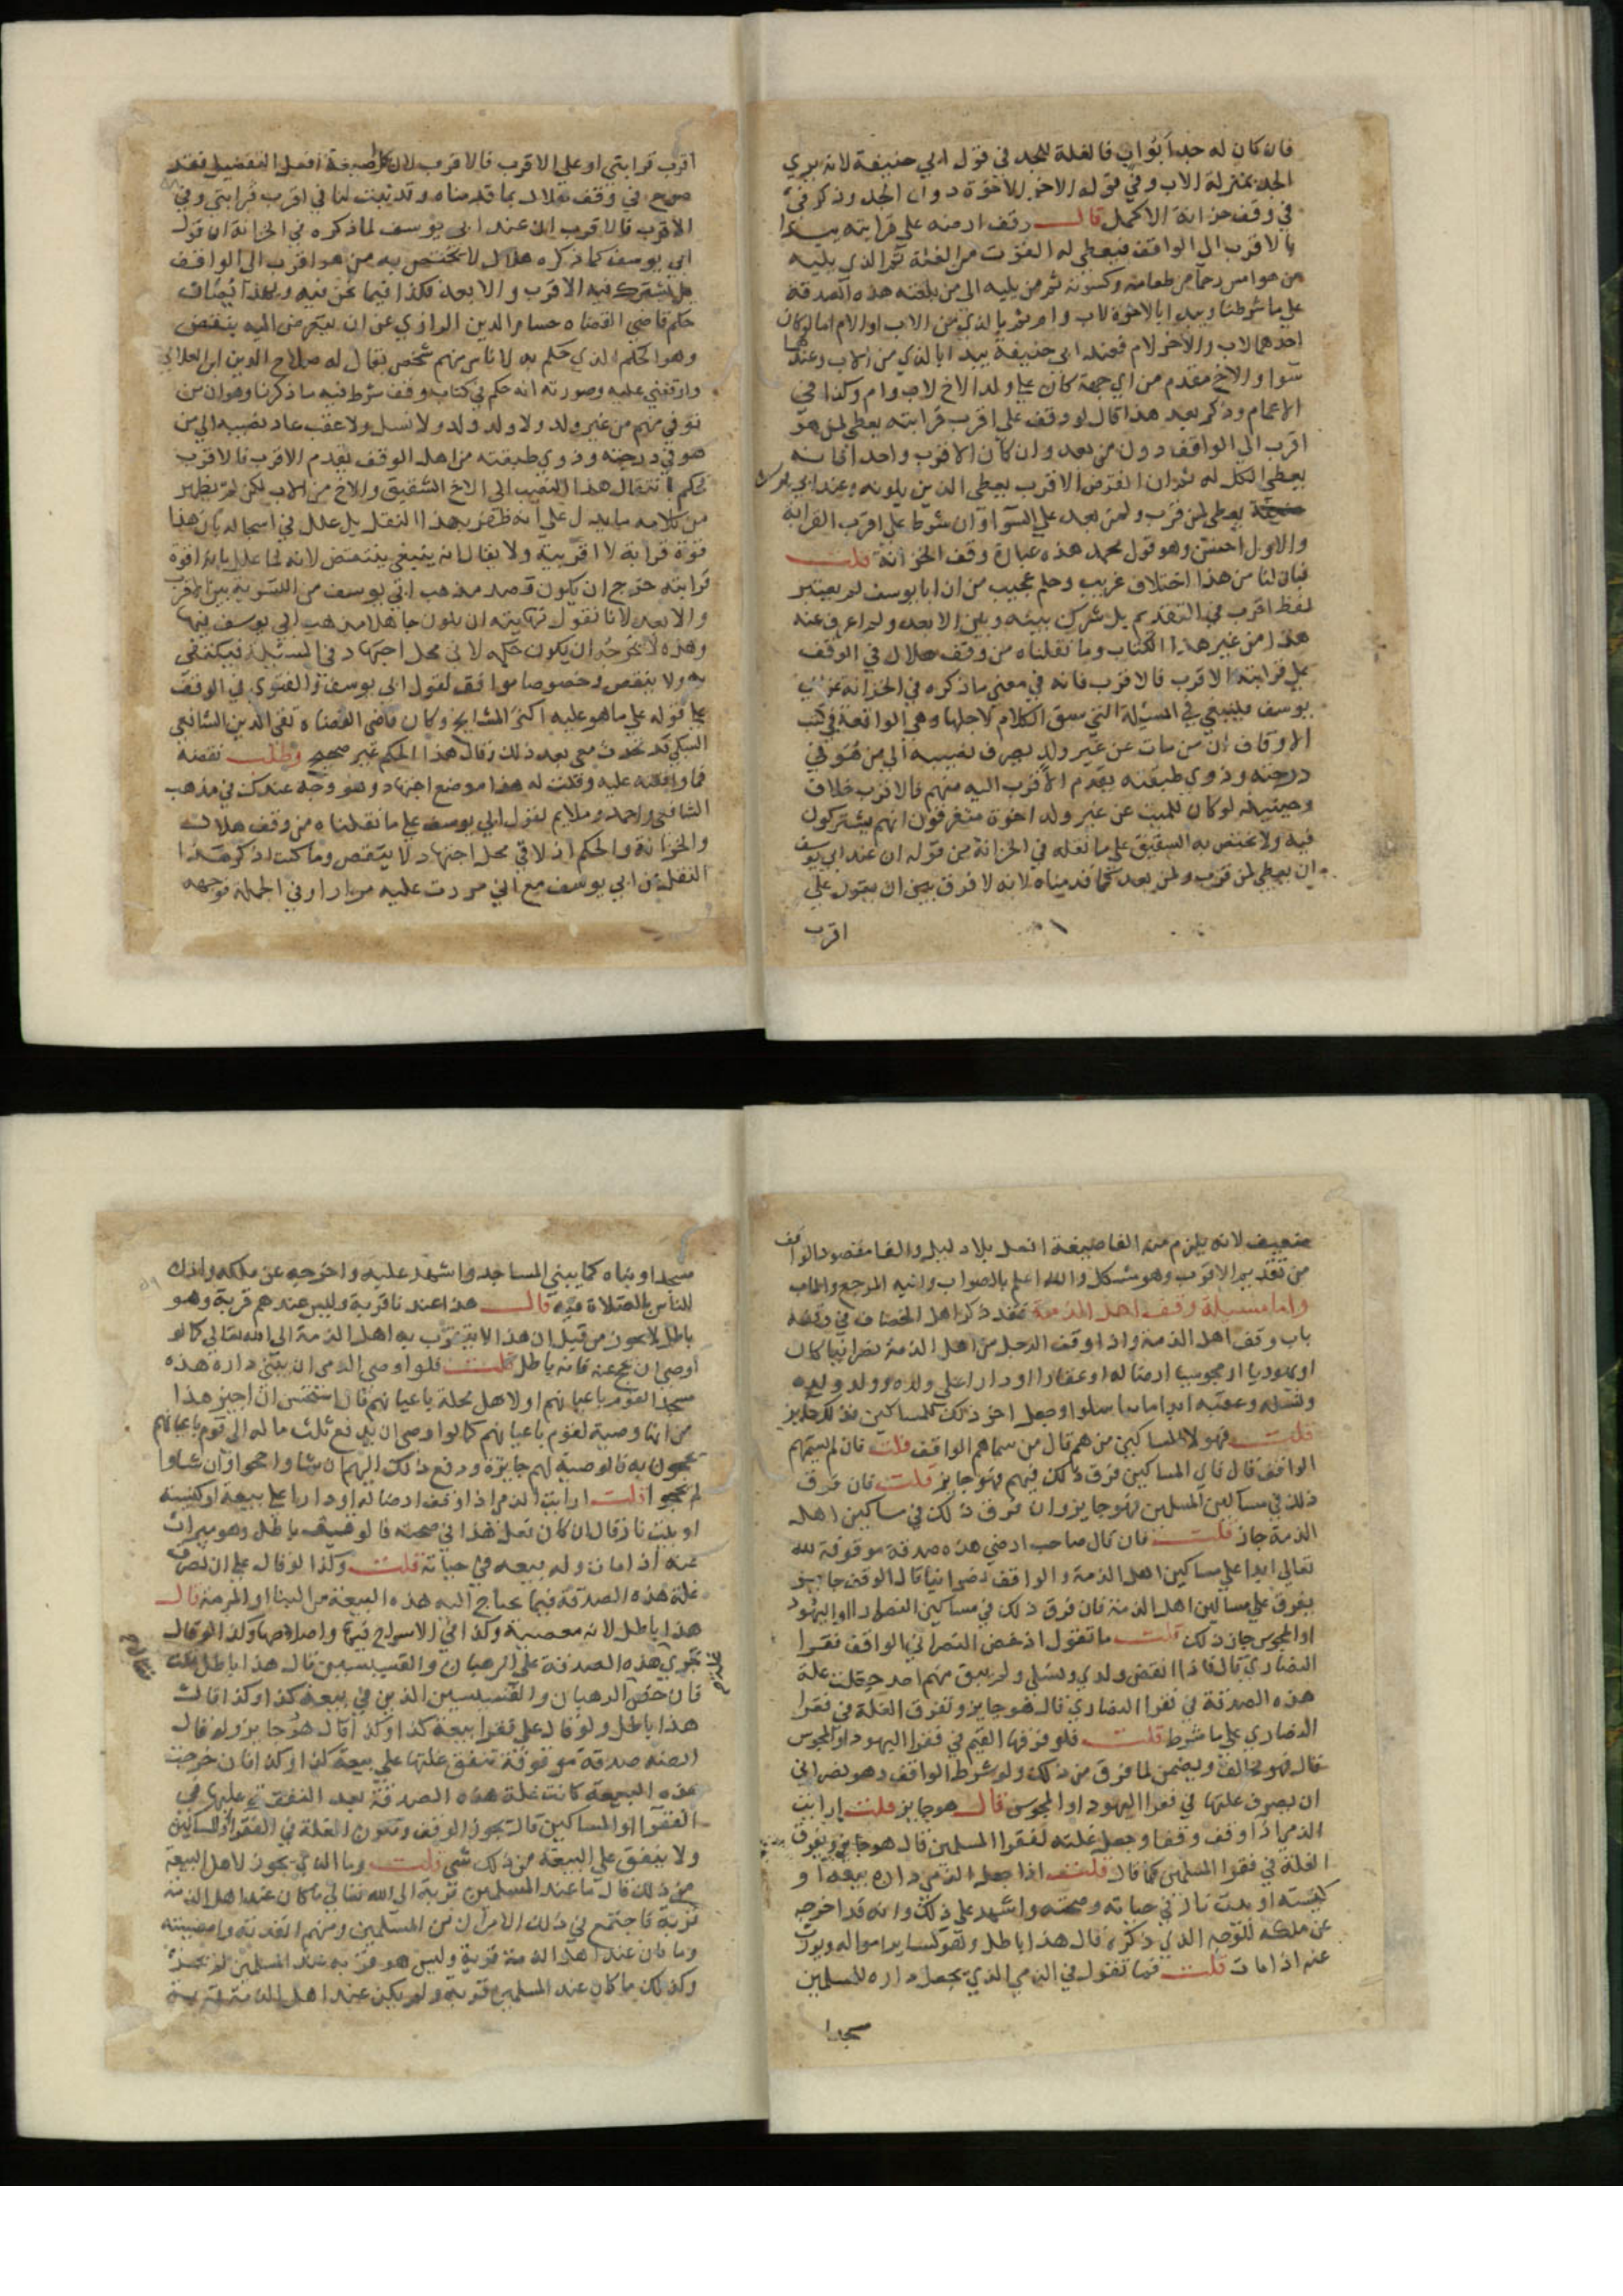 فان كان له جد ابواب فالغلة للجد في قول ابي حنيفة لانه يري
الجد بمنزلة الاب وفي قوله الاخر للاخوة دون الجد وذكر في
في وقف خزانة الاكمل قال وقف ارضه علي قرابته يبدا
بالاقرب الي الواقف فيعطي له القوت من الغلة ثم الذي يليه
من هو امس رحما من طعامه وكسوته ثم من يليه الي من بلغته هذه الصدقة
علي ما شرطنا ويبدا بالاخوة لاب وام ثم بالذي من الاب او الام اما لو كان
احدهما لاب والاخر لام فعند ابي حنيفة يبدا بالذي من الاب وعندهما
سوا والاخ مقدم من اي جهة كان علي ولد الاخ لاب وام وكذا في
الاعمام وذكر بعد هذا قال لو وقف علي اقرب قرابته يعطي لمن هو
اقرب الي الواقف دون من بعد وان كان الاقرب واحد افانه
يعطي الكل له ثم ان انقرض الاقرب يعطي الذين يلونه وعند ابي يوسف
يعطي لمن قرب ولمن بعد علي السوا وان شرط علي اقرب القرابة
والاول احسن وهو قول محمد هذه عبارة وقف الخزانة قلت
فبان لنا من هذا اختلاف غريب وحكم عجيب من ان ابا يوسف لم يعتبر
لفظ اقرب في التقديم بل شرك بينه وبين الابعد ولم اعرف عنه
هذا من غير هذا الكتاب وما نقلناه من وقف هلال في الوقف
علي قرابته الاقرب فالاقرب فانه في معني ما ذكره في الخزانة عن ابي
يوسف فينبغي في المسئلة التي سبق الكلام لاجلها وهي الواقعة في كتب
الاوقاف ان من مات عن غير ولد يصرف نصيبه الي من هو في
درجته وذوي طبقته يقدم الاقرب اليه منهم فالاقرب خلاف
وحينئذ لو كان للميت عن غير ولد اخوة متفرقون انهم يشتركون
فيه ولا يختص به الشقيق علي ما نقله في الخزانة من قوله ان عند ابي يوسف
ان يعطي لمن قرب ولمن بعد كما قدمناه لانه لا فرق بين ان يقول علي
اقرب
اقرب قرابتي او علي الاقرب فالاقرب لان كلا صيغة افعل التفضيل فقد
صرح في وقف هلال بما قدمناه وقد ثبت لنا في اقرب قرابتي وفي
الاقرب فالاقرب ان عند ابي يوسف لما ذكره في الخزانة ان قول
ابي يوسف كما ذكره هلال لا يختص به من هو اقرب الي الواقف
بل يشترك فيه الاقرب والابعد فكذا فيما نحن فيه وبهذا
حكم قاضي القضاه حسام الدين الرازي عن ان يتعرض اليه بنقض
وهو الحكم الذي حكم به لاناس منهم شخص يقال له صلاح الدين ابن العلائي
واوقفني عليه وصورته انه حكم في كتاب وقف شرط فيه ما ذكرنا وهو ان من
توفي منهم من غير ولد ولا ولد ولد ولا نسل ولا عقب عاد نصيبه الي من
هو في درجته وذوي طبقته من اهل الوقف يقدم الاقرب فالاقرب
فحكم بانتقال هذا النصيب الي الاخ الشقيق والاخ من الاب لكن لم يظهر
من كلامه ما يدل علي انه ظفر بهذا النقل بل علل في اسجاله بان هذا
قوة قرابة لا اقربية ولا يقال انه ينبغي ينتقض لانه لما علل بانه اقوة
قرابته خرج ان يكون قصد مذهب ابي يوسف من التسوية بين الاقرب
والابعد لانا نقول نهايته ان يكون جاهلا مذهب ابي يوسف فيها
وهذه لا تخرجه ان يكون حكمه لاقي محل اجتهاد في المسئلة فيكتفي
به ولا ينقض وخصوصا موافق لقول ابي يوسف والفتوي في الوقف
علي قوله علي ما هو عليه اكثر المشايخ وكان قاضي القضاه تقي الدين الشافعي
السبكي قد تحدث معي بعد ذلك وقال هذا الحكم غير صحيح وطلب نقضه
فما وافقته عليه وقلت له هذا موضع اجتهاد وهو وجه عندك في مذهب
الشافعي واحمد وملايم لقول ابي يوسف علي ما نقلناه من وقف هلال
والخزانة والحكم اذ لاقي محل اجتهاد لا ينقض وما كنت اذكر هذا
النقل عن ابي يوسف مع اني مررت عليه مرارا وفي الجملة توجهه
ضعيف لانه يلزم منه الغا صيغة افعل بلا دليل والغا مقصود الواقف
من تقديم الاقرب وهو مشكل والله اعلم بالصواب واليه المرجع والماب
واما مسئلة وقف اهل الذمة فقد ذكر اهل الخصاف في وقفه
باب وقف اهل الذمة واذا وقف الرجل من اهل الذمة نصرانيا كان
او يهوديا او مجوسيا ارضا له او عقارا او دارا علي ولده وولد ولده
ونسله وعقبه ابدا ما تناسلوا وجعل اخر ذلك للمساكين فذلك جايز
قلت فهو لا المساكين من هم قال من سماهم الواقف قلت فان لم يسمهم
الواقف قال فاي المساكين فرق ذلك فيهم فهو جايز قلت فان فرق
ذلك في مساكين المسلمين فهو جايز وان فرق ذلك في مساكين اهل
الذمة جاز قلت فان قال صاحب ارضي هذه صدقة موقوفة لله
تعالي ابدا علي مساكين اهل الذمة والواقف نصرانيا قال الوقف جايز
يفرق علي مساكين اهل الذمة فان فرق ذلك في مساكين النصارا او اليهود
او المجوس جاز ذلك قلت ما تقول اذ خص النصراني الواقف فقرا
النصاري قال فاذا انقرض ولدي ونسلي ولم يبق منهم احد جعلت غلة
هذه الصدقة في فقرا النصاري قال فهو جايز وتفرق الغلة في فقرا
النصاري علي ما شرط قلت فلو فرقها القيم في فقرا اليهود او المجوس
قال فهو مخالف ويضمن لما فرق من ذلك ولو شرط الواقف وهو نصراني
ان يصرف غلتها في فقرا اليهود او المجوس قال هو جايز قلت ارايت
الذمي اذا وقف وقفا وجعل غلته لفقرا المسلمين قال هو جايز ويفرق
الغلة في فقرا المسلمين كما قال قلت اذا جعل الذمي داره بيعة او
كنيسة او بيت نار في حياته وصحته واشهد علي ذلك وانه قد اخرجه
عن ملكه للوجه الذي ذكره قال هذا باطل وهو كساير امواله ويورث
عنه اذا مات قلت فما تقول في الذمي الذي يجعل داره للمسلمين
مسجدا
مسجدا وبناه كما يبني المساجد واشهد عليه واخرجه عن ملكه واذن
للناس بالصلاة فيه قال هذا عندنا قربة وليس عندهم قربة وهو
باطل لا يجوز من قبل ان هذا لا يتقرب به اهل الذمة الي الله تعالي كما لو
اوصي ان يحج عنه فانه باطل قلت فلو اوصي الذمي ان يبني داره هذه
مسجدا لقوم باعيانهم او لاهل محلة باعيانهم قال استحسن ان اجيز هذا
من انها وصية لقوم باعيانهم كما لو اوصي ان يدفع ثلث ماله الي قوم باعيانهم
يحجون به فالوصية لهم جايزة ودفع ذلك اليهم ان شاوا حجوا وان شاوا
لم يحجوا قلت ارايت الذمي اذا وقف ارضا له او دارا علي بيعة او كنيسة
او بيت نار قال ان كان فعل هذا في صحته فالوقف باطل وهو ميراث
عنه اذا مات وله بيعه في حياته قلت وكذا لو قال علي ان تصرف
غلة هذه الصدقة فيما يحتاج اليه هذه البيعة من البنا او المرمة قال
هذا باطل لانه معصية وكذا في الاسراج فيها واصلاحها وكذا لو قال
تجري هذه الصدقة علي الرهبان والقسيسين قال هذا باطل قلت
فان خص الرهبان والقسيسين الذين في بيعة كذا وكذا قال
هذا باطل ولو قال علي فقرا بيعة كذا وكذا قال هو جايز ولو قال
ارضه صدقة موقوفة تنفق غلتها علي بيعة كذا وكذا فان خربت
هذه البيعة كانت غلة هذه الصدقة بعد النفقة عليها في
الفقرا والمساكين قال يجوز الوقف وتكون الغلة في الفقرا والمساكين
ولا ينفق علي البيعة من ذلك شي قلت وما الذي يجوز لاهل البيعة
من ذلك قال ما عند المسلمين قربة الي الله تعالي ما كان عند اهل الذمة
قربة فاجتمع في ذلك الامران من المسلمين ومنهم
وما كان عند اهل الذمة قربة وليس هو قربة عند المسلمين لم يجز
وكذلك ما كان عند المسلمين قربة ولم يكن عند اهل الذمة قربة